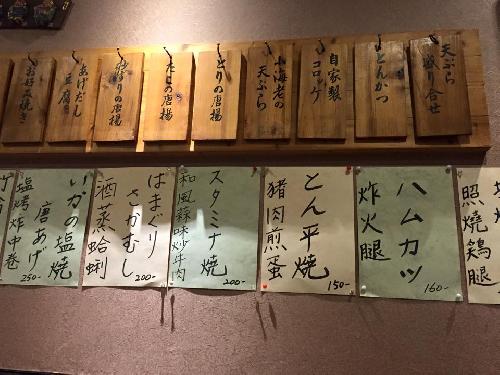 天ぷら
盛り合せ
とんかつ
自家製
コロッケ
小海老の
天ぷら
とりの唐揚
たこの唐揚
の唐揚
あげだし
豆腐
お好み焼き
照燒鶏腿
ハムカツ
炸火腿
160-
とん平焼
豬肉煎蛋
150-
スタミナ焼
和風蒜味炒牛肉
200-
はまぐり
さかむし
酒蒸蛤蜊
200-
いかの塩焼
唐あげ
塩烤炸中卷
250-